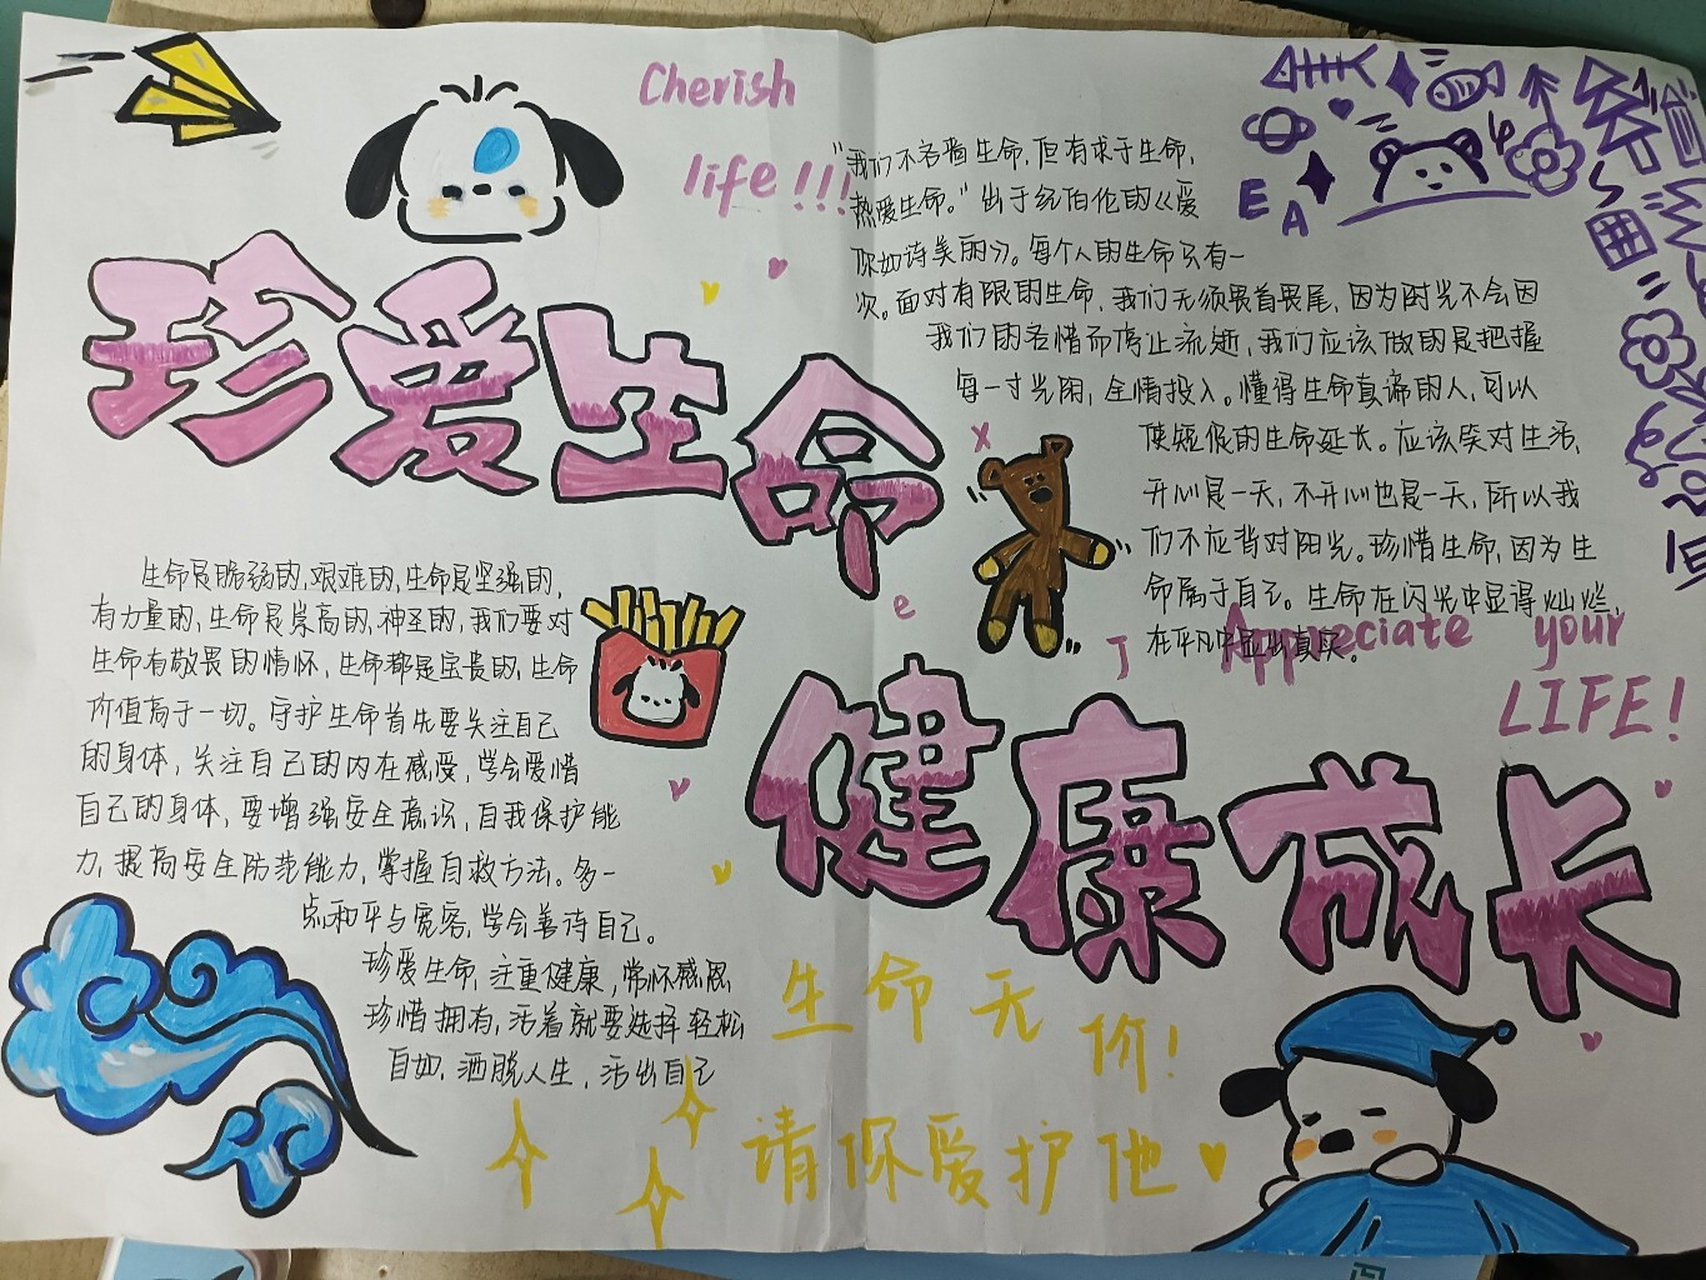 Cherish
life!!!
珍爱生命
"我们不吝啬生命,但有求于生命,
热爱生命。"出于纪伯伦的《爱
你如诗美丽》。每个人的生命只有一
次。面对有限的生命,我们无须畏首畏尾,因为时光不会因
我们的吝惜而停止流逝,我们应该做的是把握
每一寸光阴,全情投入。懂得生命真谛的人,可以
使短促的生命延长。应该笑对生活,
开心是一天,不开心也是一天,所以我
们不应背对阳光。珍惜生命,因为生
命属于自己。生命在闪光中显得灿烂,
在平凡中显出真实。
E
A
x
e
J
Appreciate your
LIFE!
生命是脆弱的,艰难的,生命是坚强的,
有力量的,生命是崇高的,神圣的,我们要对
生命有敬畏的情怀,生命都是宝贵的,生命
价值高于一切。守护生命首先要关注自己
的身体,关注自己的内在感受,学会爱惜
自己的身体,要增强安全意识,自我保护能
力,提高安全防范能力,掌握自救方法。多一
点和平与宽容,学会善待自己。
珍爱生命,注重健康,常怀感恩,
珍惜拥有,活着就要选择轻松
自如,洒脱人生,活出自己
健康成长
生命无价!
请你爱护他